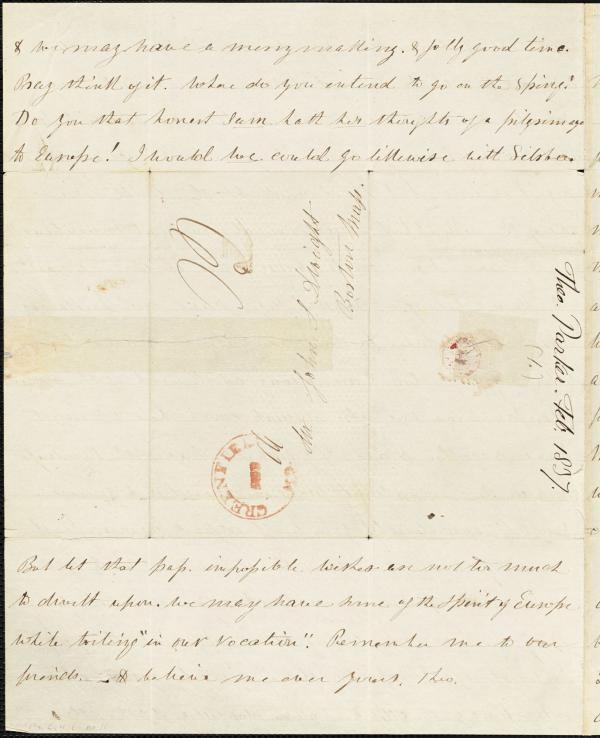 & we may have a merry making. & jolly good time.
Pray think of it. Where do you intend to go on the Spring?
Do you that honest Sam hath her thoughts of a pilgrimage
to Europe! I would we could go likewise with
John S Dwight
Boston Mass.
GREENFIELD
MS
Theo. Parker. Feb. 1837.
(1.)
But let that pass. impossible wishes are not too much
to dwell upon. we may have some of the Spirit of Europe
while toiling "in our vocation". Remember me to our
friends. — & believe me ever yours. Theo.